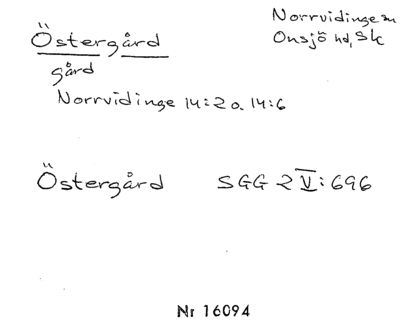 Östergård
Norrvidinge sn
Onsjö hd, Sk
gård
Norrvidinge 14:2 o. 14:6
Östergård SGG 2 V:696
Nr 16094